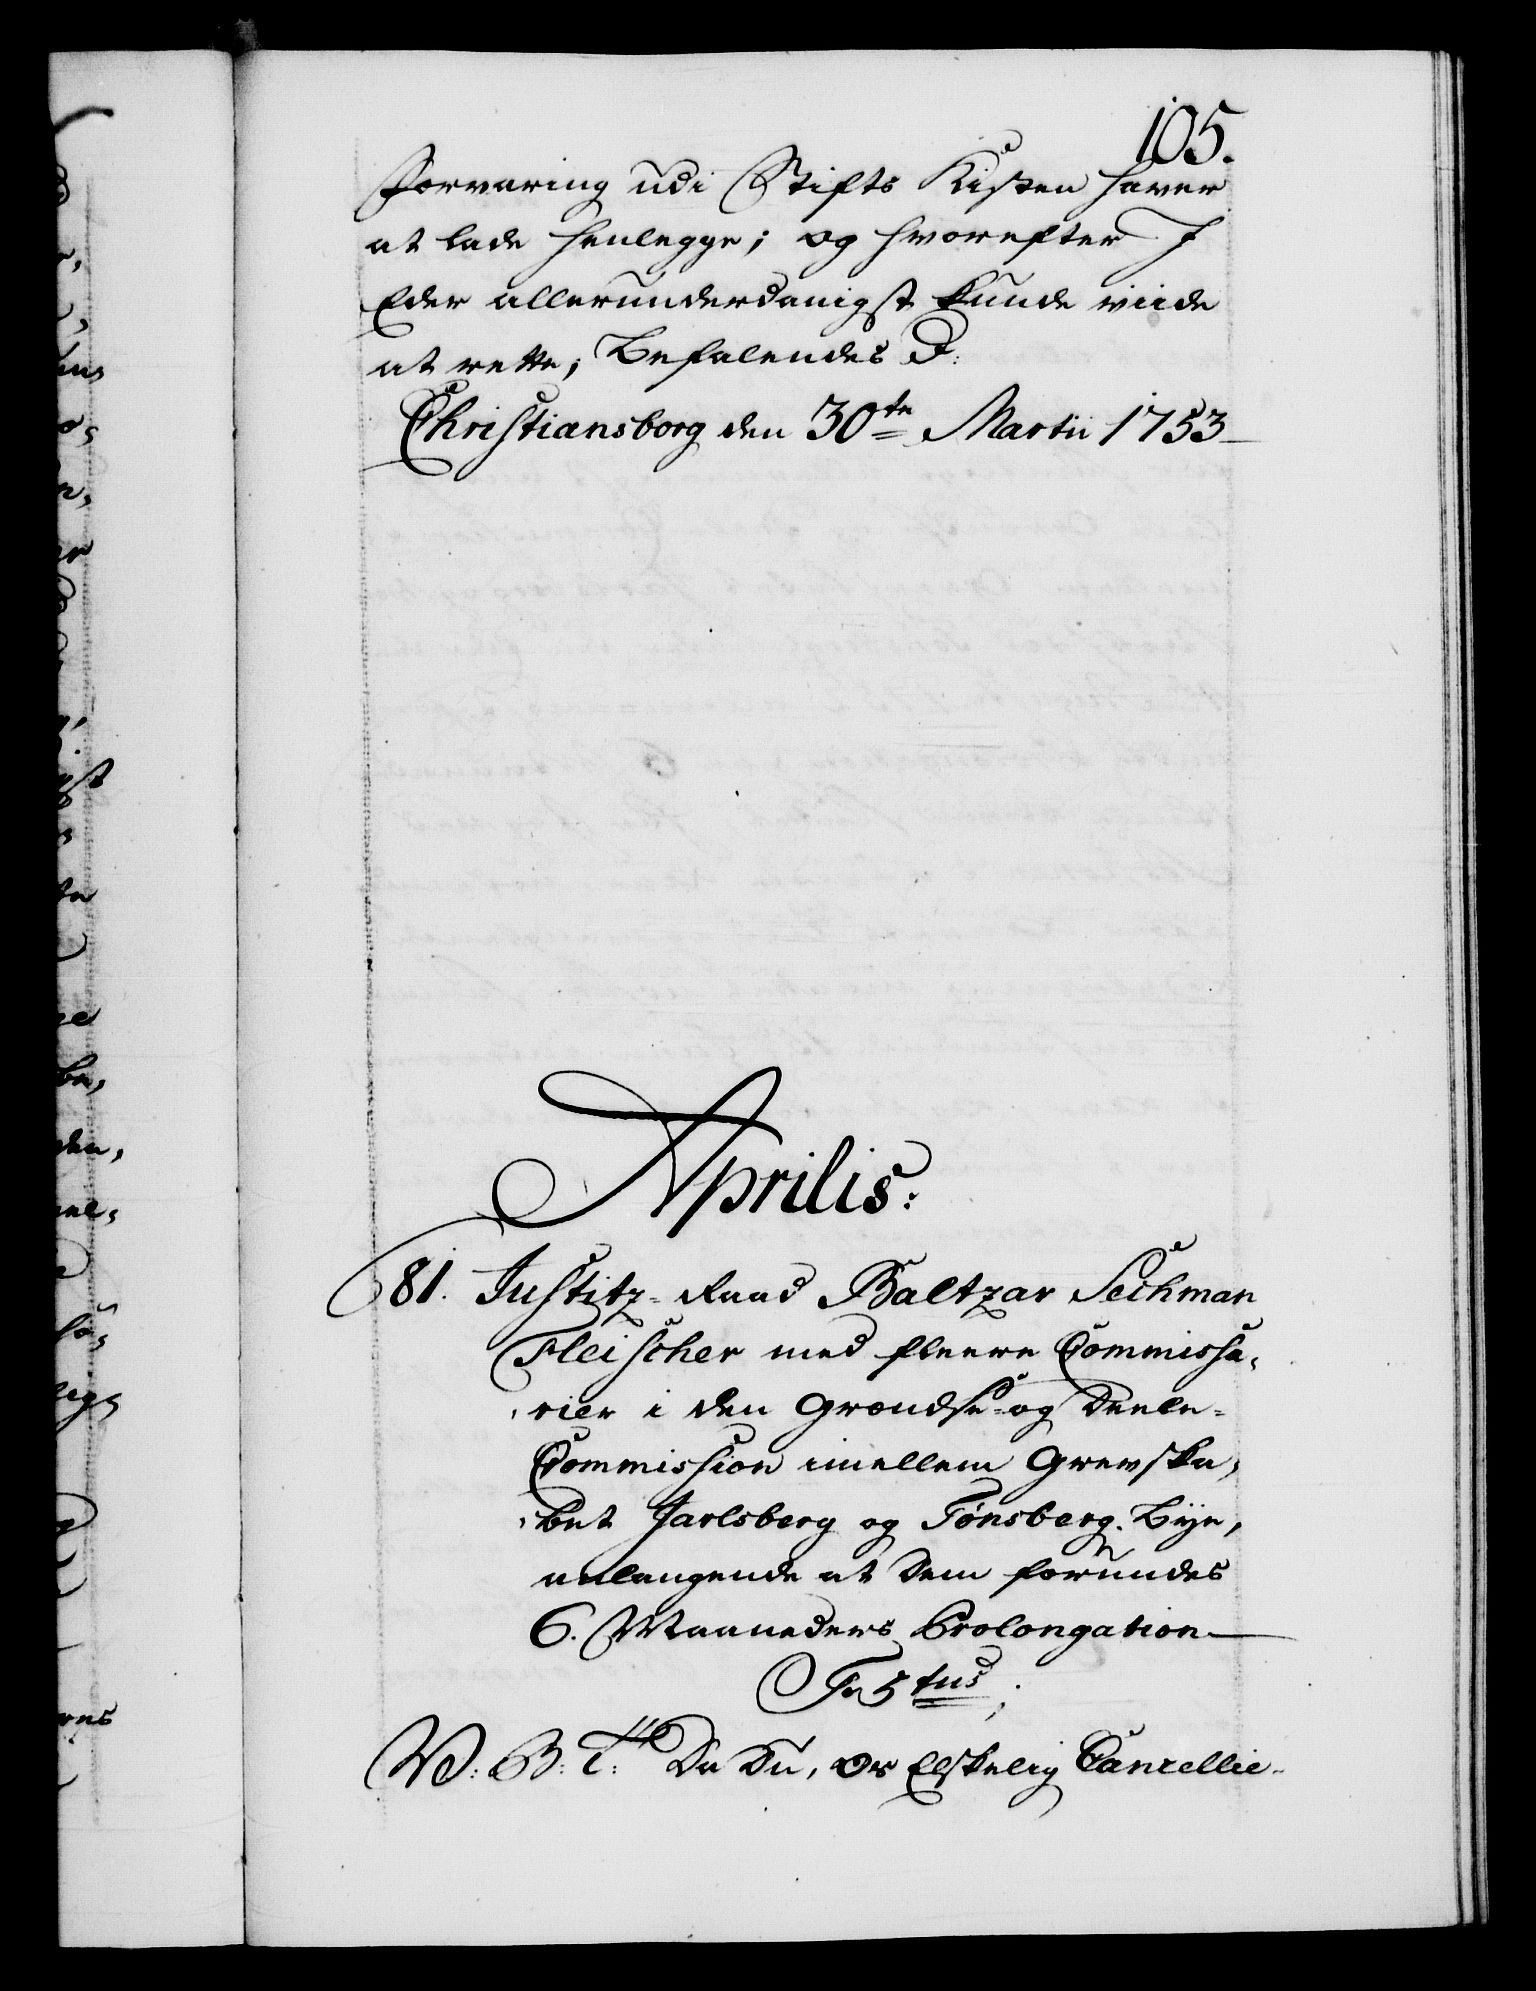 105.
Forvaring udi Stifts Kisten haver
at lade henlegge; og hvorefter I
Eder allerunderdanigst kunde viide
at rette; Befalendes D:
Christiansborg den 30te Martii 1753
Aprilis:
81. Justitz-Raad Baltzar Sechman
Fleischer med fleere Commissa,
,rier i den Grændse-og Deele-
Commission imellem Grevska,
,bet Jarlsberg og Tønsberg Bye,
anlangende at Dem forundes
6. Maaneders Prolongation
Fr 5tus;
V: G: T: Da Du, Os Elskelig Cancellie-